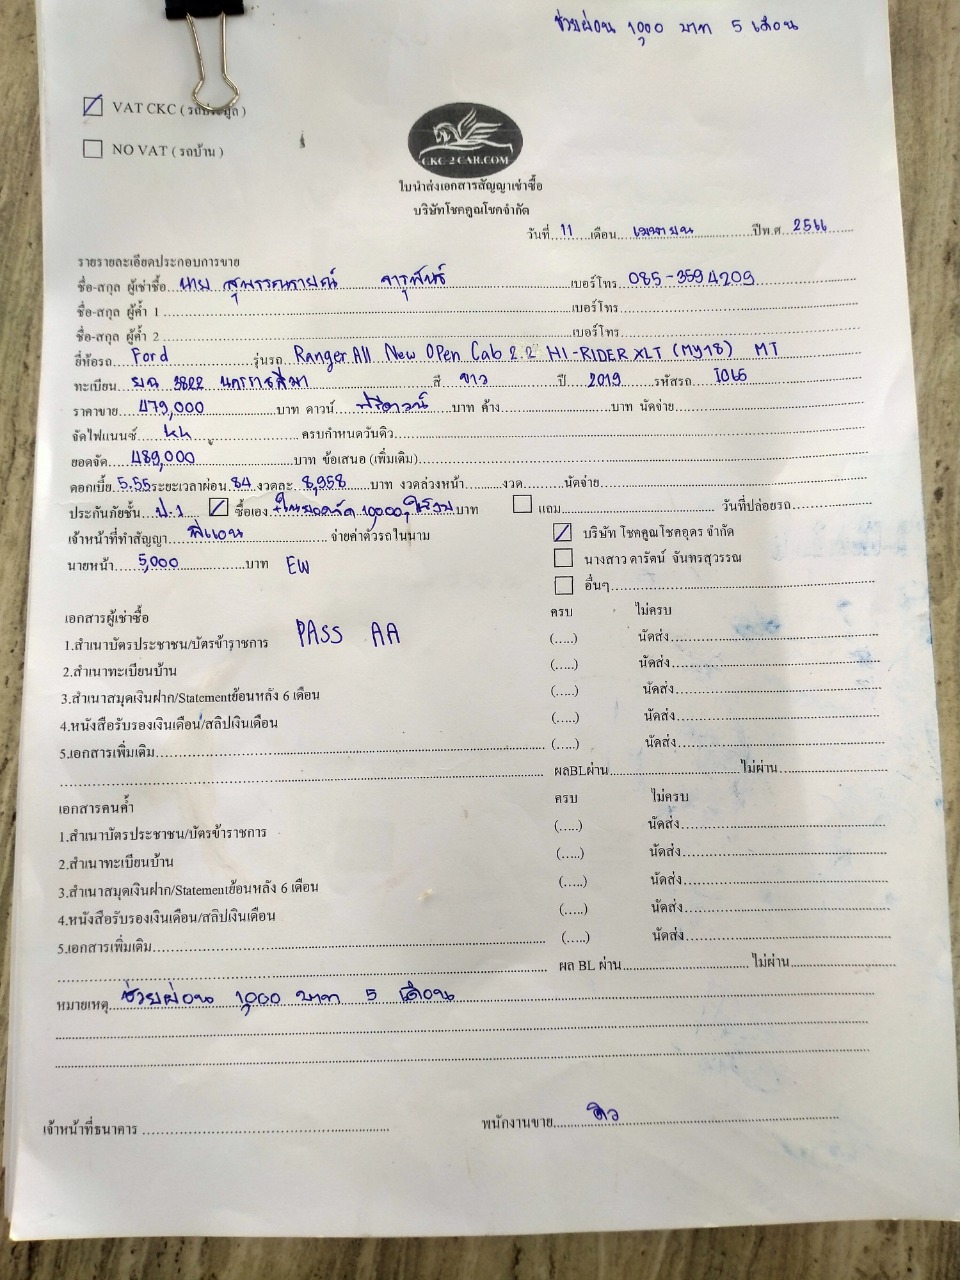 ช่วยผ่อน 1,000 บาท 5 เดือน
VAT CKC ( รถประมูล )
NO VAT ( รถบ้าน )
CKC-2CAR.COM
ใบนำส่งเอกสารสัญญาเช่าซื้อ
บริษัทโชคคูณโชคจำกัด
วันที่ 11 เดือน เมษายน ปีพ.ศ. 2566
รายรายละเอียดประกอบการขาย
ชื่อ-สกุล ผู้เช่าซื้อ นาย เบอร์โทร 085-3594209
ชื่อ-สกุล ผู้ค้ำ 1 เบอร์โทร
ชื่อ-สกุล ผู้ค้ำ 2 เบอร์โทร
ยี่ห้อรถ Ford รุ่นรถ Ranger All New Open Cab 2.2 HI-RIDER XLT (MY18) MT
ทะเบียน 3822 นครราชสีมา สี ขาว ปี 2019 รหัสรถ I065
ราคาขาย 479,000 บาท ดาวน์ ฟรีดาวน์ บาท ค้าง บาท นัดจ่าย
จัดไฟแนนซ์ kk ครบกำหนดวันดิว
ยอดจัด 489,000 บาท ข้อเสนอ (เพิ่มเติม)
ดอกเบี้ย 5.55 ระยะเวลาผ่อน 84 งวดละ 8,958 บาท งวดล่วงหน้า งวด นัดจ่าย
ประกันภัยชั้น ป.1 ซื้อเอง 10,000 บาท แถม วันที่ปล่อยรถ
เจ้าหน้าที่ทำสัญญา จ่ายค่าตัวรถในนาม บริษัท โชคคูณโชคอุดร จำกัด
นายหน้า 5,000 บาท EW นางสาว ดารัตน์ จันทรสุวรรณ
อื่นๆ
เอกสารผู้เช่าซื้อ ครบ ไม่ครบ
1.สำเนาบัตรประชาชน/บัตรข้าราชการ PASS AA (.....) นัดส่ง
2.สำเนาทะเบียนบ้าน (.....) นัดส่ง
3.สำเนาสมุดเงินฝาก/Statementย้อนหลัง 6 เดือน (.....) นัดส่ง
4.หนังสือรับรองเงินเดือน/สลิปเงินเดือน (.....) นัดส่ง
5.เอกสารเพิ่มเติม (.....) นัดส่ง
ผลBLผ่าน ไม่ผ่าน
เอกสารคนค้ำ ครบ ไม่ครบ
1.สำเนาบัตรประชาชน/บัตรข้าราชการ (.....) นัดส่ง
2.สำเนาทะเบียนบ้าน (.....) นัดส่ง
3.สำเนาสมุดเงินฝาก/Statementย้อนหลัง 6 เดือน (.....) นัดส่ง
4.หนังสือรับรองเงินเดือน/สลิปเงินเดือน (.....) นัดส่ง
5.เอกสารเพิ่มเติม (.....) นัดส่ง
ผล BL ผ่าน ไม่ผ่าน
หมายเหตุ ช่วยผ่อน 1,000 บาท 5 เดือน
เจ้าหน้าที่ธนาคาร พนักงานขาย ดิว